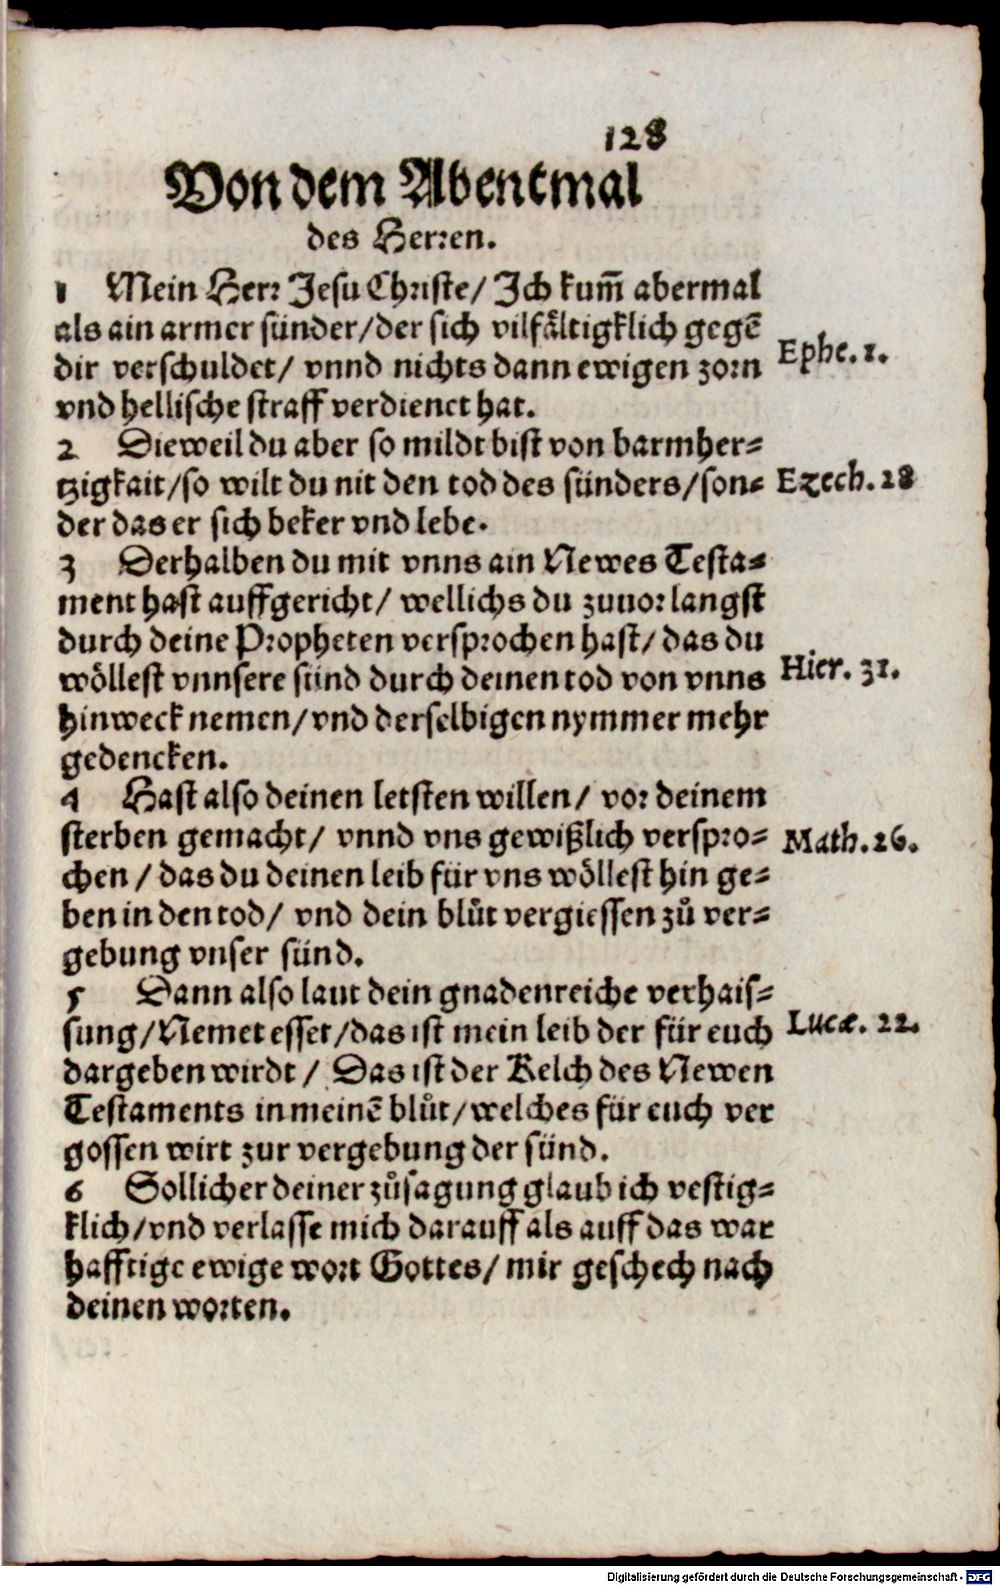 128
Von dem Abentmal
des Herren.
1 Mein Herr Jesu Christe/ Ich kum̃ abermal
als ain armer sünder/der sich vilfåltigklich gegẽ
dir verschuldet/ vnnd nichts dann ewigen zorn
Ephe. 1.
vnd hellische straff verdienet hat.
2 Dieweil du aber so mildt bist von barmher⸗
tzigkait/so wilt du nit den tod des sünders/son⸗
Ezech. 18
der das er sich beker vnd lebe.
3 Derhalben du mit vnns ain Newes Testa⸗
ment hast auffgericht/ wellichs du zuuor langst
durch deine Propheten versprochen hast/ das du
wöllest vnnsere sünd durch deinen tod von vnns
Hier. 31.
hinweck nemen/vnd derselbigen nymmer mehr
gedencken.
4 Hast also deinen letsten willen/ vor deinem
sterben gemacht/ vnnd vns gewißlich verspro⸗
Math. 26.
chen / das du deinen leib für vns wöllest hin ge⸗
ben in den tod/ vnd dein blůt vergiessen zů ver⸗
gebung vnser sünd.
5 Dann also laut dein gnadenreiche verhais⸗
sung/Nemet esset/das ist mein leib der für euch
Lucæ. 22.
dargeben wirdt / Das ist der Kelch des Newen
Testaments in meinẽ blůt/welches für euch ver
gossen wirt zur vergebung der sünd.
6 Sollicher deiner zůsagung glaub ich vestig⸗
klich/vnd verlasse mich darauff als auff das war
hafftige ewige wort Gottes/ mir geschech nach
deinen worten.
Digitalisierung gefördert durch die Deutsche Forschungsgemeinschaft - DFG